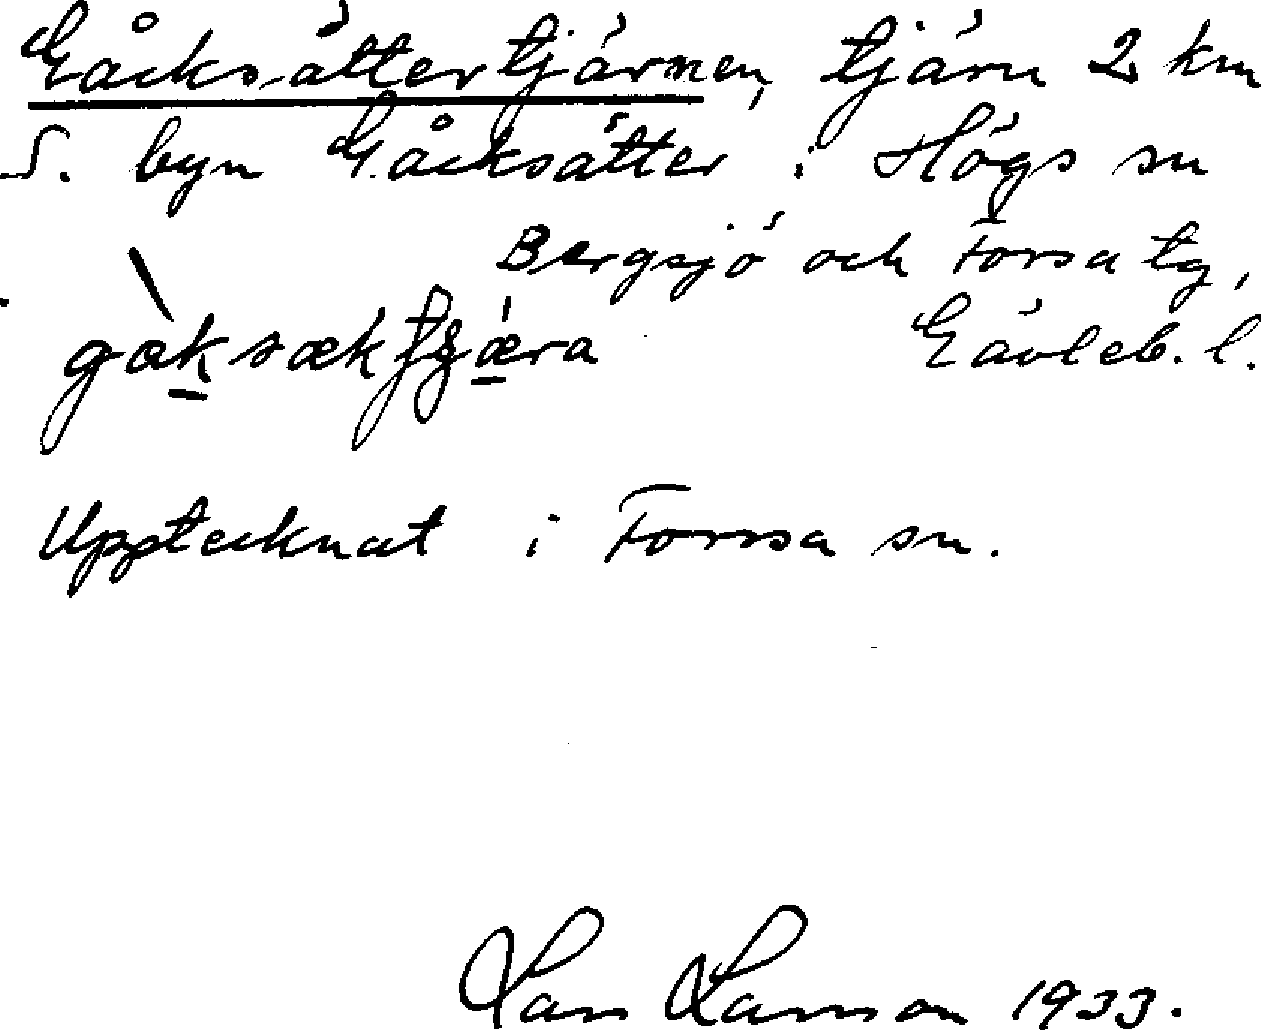 Gåcksättertjärnen, tjärn 2 km
S. byn Gåcksätter i Högs sn
Bergsjö och Forsa tg,
Gävleb. l.
Upptecknat i Forssa sn.
Lars Larsson 1933.